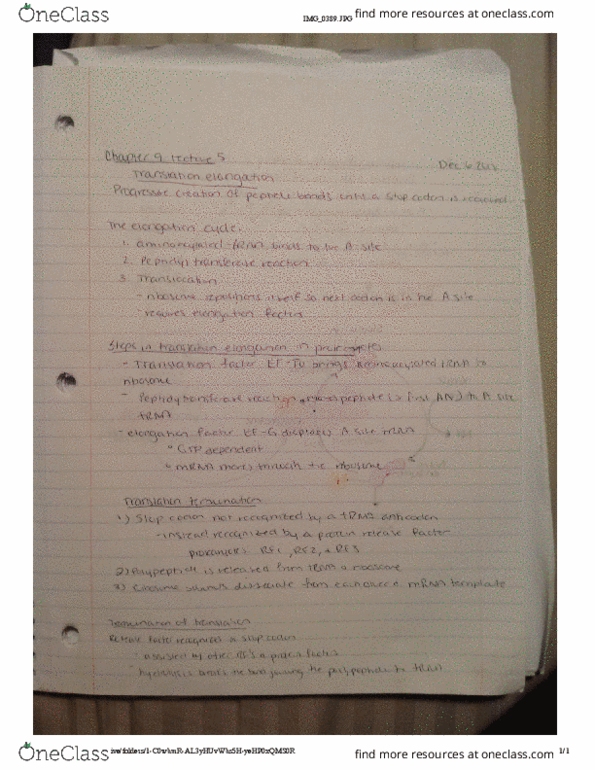 OneClass
IMG_0389.JPG
find more resources at oneclass.com
Chapter 9 lecture 5
Dec 6
Translation elongation
Progressive creation of peptide bonds until a stop codon is
The elongation cycle:
1. aminoacylated-tRNA binds to the A site
2. Peptidyl transferase reaction
3. Translocation
- ribosome repositions itself so next codon is in the A site
requires elongation factors
Steps in translation elongation in prokaryotes
- Translation factor EF-Tu brings aminoacylated tRNA to
ribosome
- Peptidyl transferase reaction peptide (or first AA) to A site
tRNA
- elongation factor EF-G displaces A site tRNA
GTP dependent
mRNA moves through the ribosome
Translation termination
1) Stop codon not recognized by a tRNA anticodon
- instead recognized by a protein release factor
prokaryotes RF1, RF2, & RF3
2) Polypeptide is released from tRNA & ribosome
3) Ribosome subunits dissociate from each other & mRNA template
Termination of translation
Release factor recognizes a stop codon
assisted by other RF's & protein factors
hydrolysis breaks the bond joining the polypeptide to tRNA
OneClass
ive/folders/1-C0whnR-AL3yHUvWhz5H-yeHP0zQMS0R
1/1
find more resources at oneclass.com